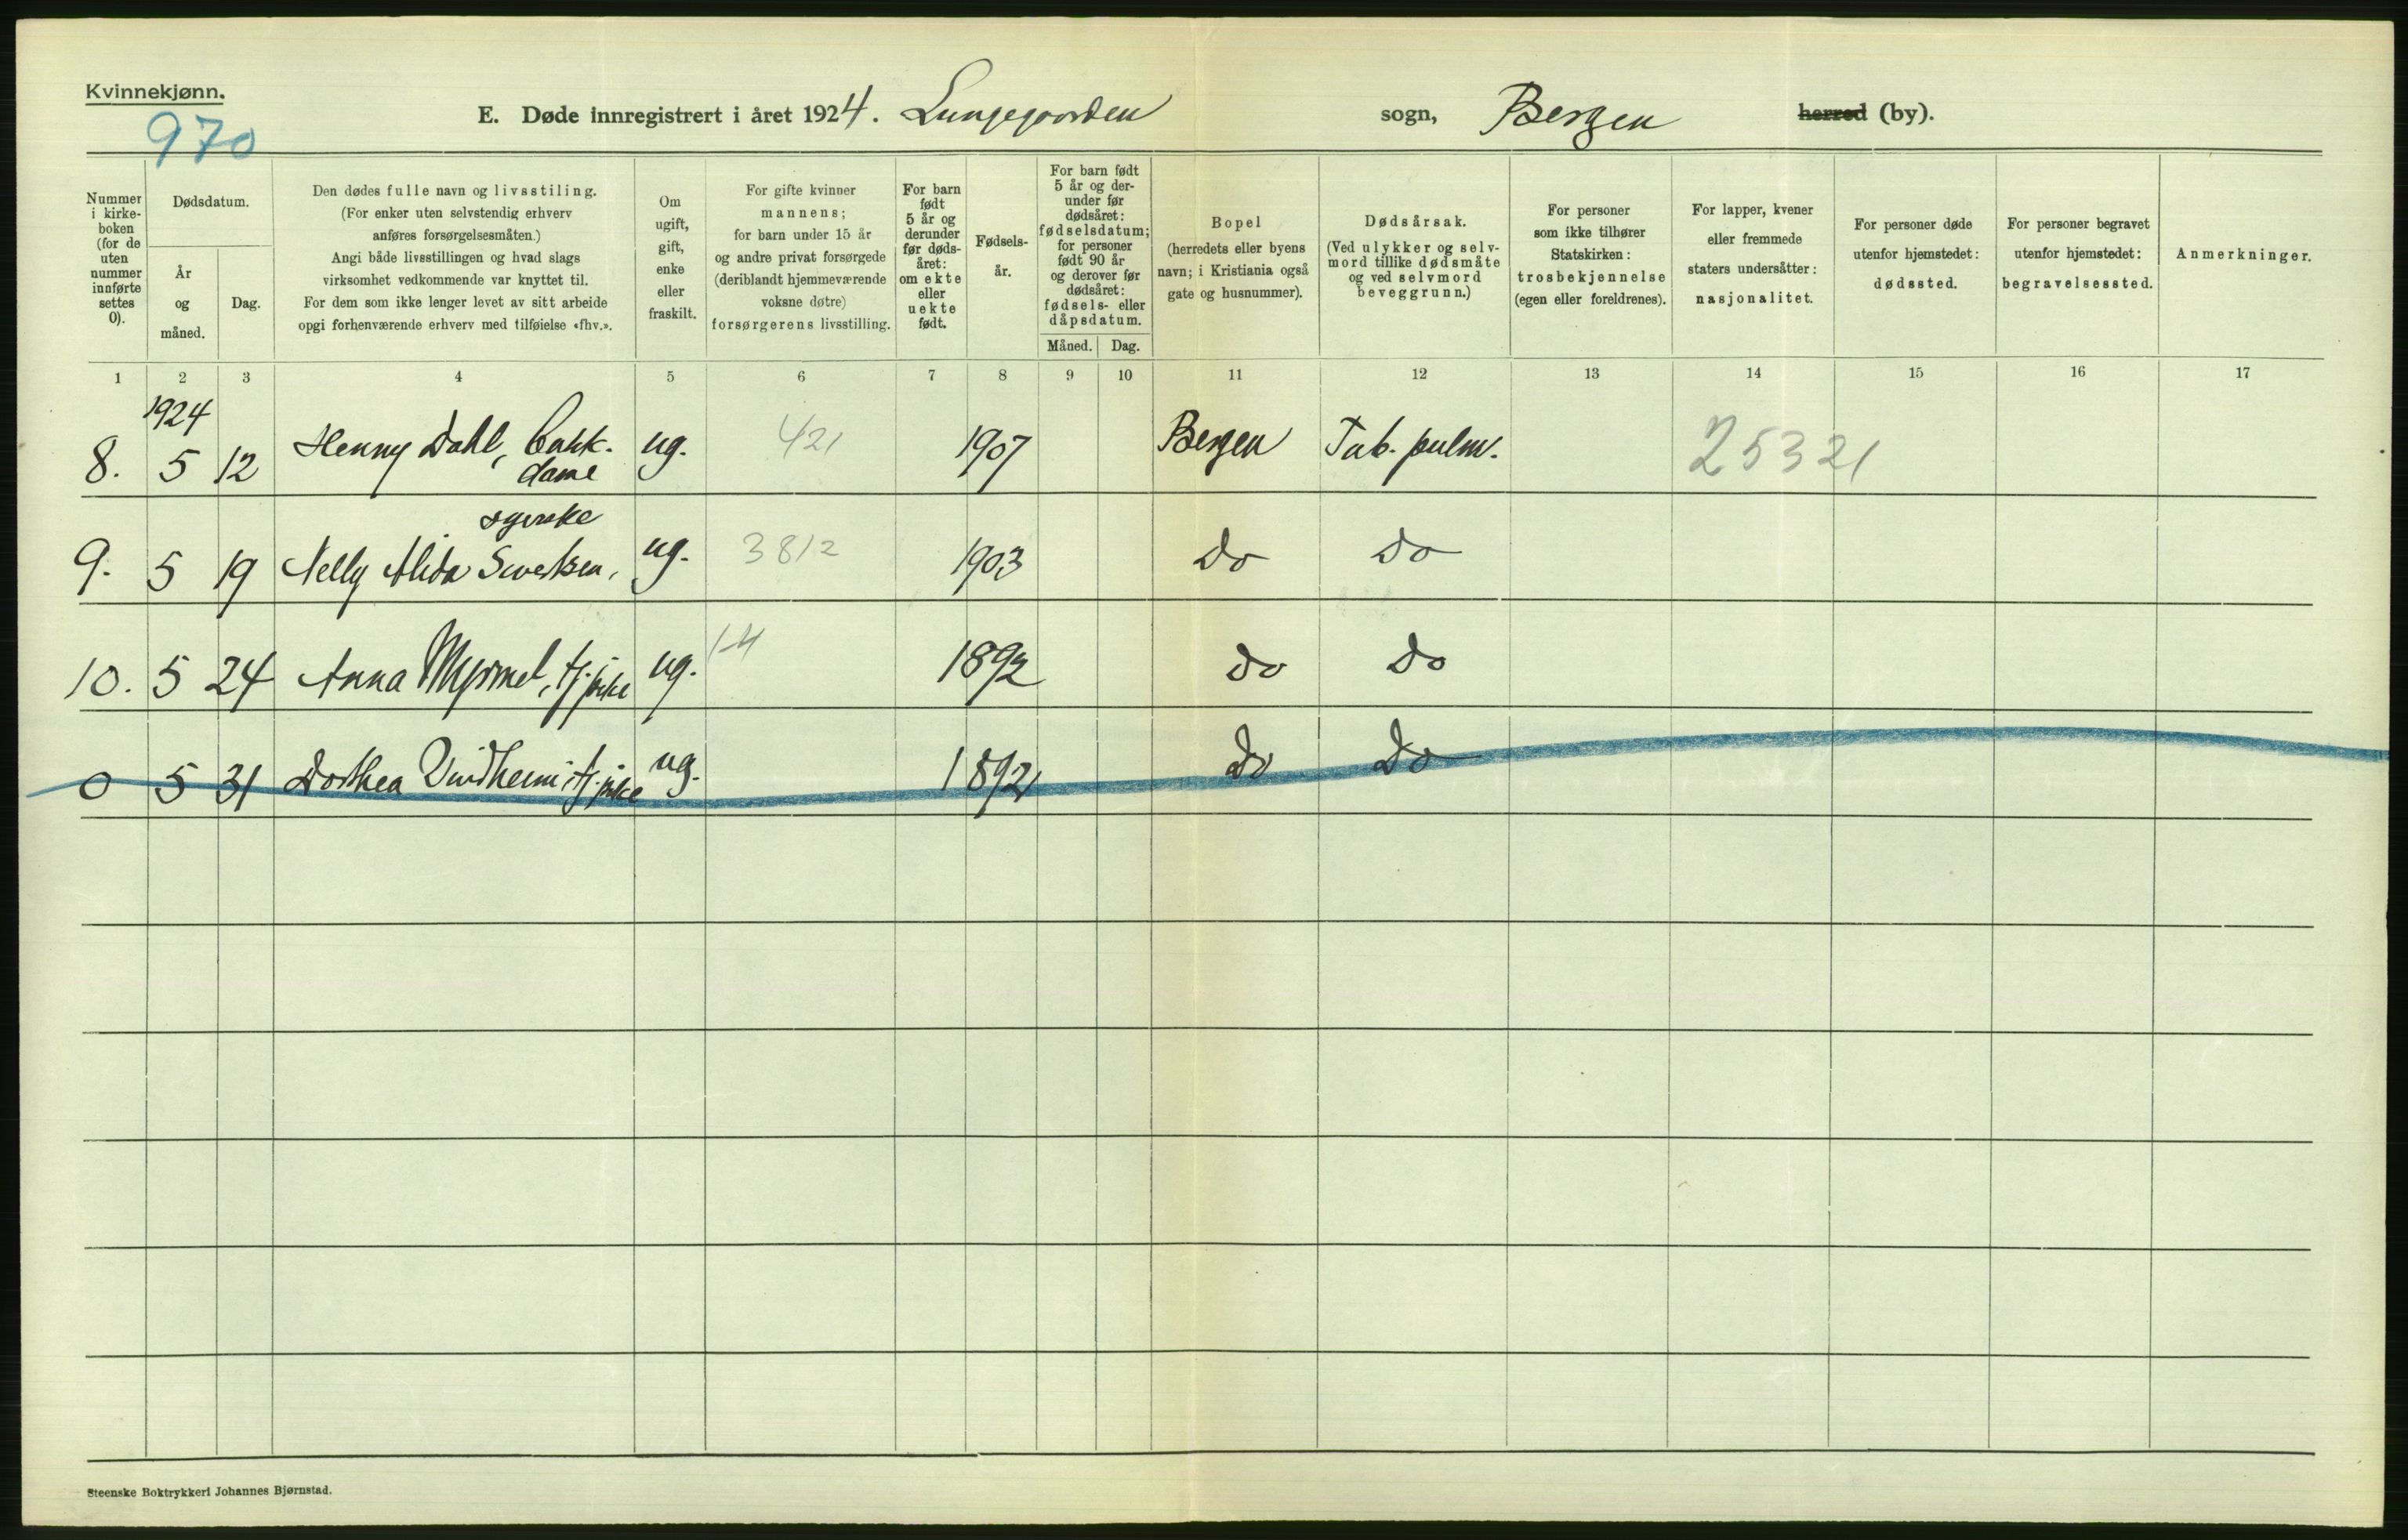 Kvinnekjønn.
970
E. Døde innregistrert i året 1924. Lungegaarden sogn, Bergen herred (by).
Nummer
i kirke-
boken
(for de
uten
nummer
innførte
settes
0).
Dødsdatum.
År
og
måned.
Dag.
Den dødes fulle navn og livsstiling.
(For enker uten selvstendig erhverv
anføres forsørgelsesmåten.)
Angi både livsstillingen og hvad slags
virksomhet vedkommende var knyttet til.
For dem som ikke lenger levet av sitt arbeide
opgi forhenværende erhverv med tilføielse «fhv.».
Om
ugift,
gift,
enke
eller
fraskilt.
For gifte kvinner
mannens;
for barn under 15 år
og andre privat forsørgede
(deriblandt hjemmeværende
voksne døtre)
forsørgerens livsstilling.
For barn
født
5 år og
derunder
før døds-
året:
om ekte
eller
uekte
født.
Fødsels-
år.
For barn født
5 år og der-
under før
dødsåret:
fødselsdatum;
for personer
født 90 år
og derover før
dødsåret:
fødsels- eller
dåpsdatum.
Måned. Dag.
Bopel
(herredets eller byens
navn; i Kristiania også
gate og husnummer).
Dødsårsak.
(Ved ulykker og selv-
mord tillike dødsmåte
og ved selvmord
beveggrunn.)
For personer
som ikke tilhører
Statskirken:
trosbekjennelse
(egen eller foreldrenes).
For lapper, kvener
eller fremmede
staters undersåtter:
nasjonalitet.
For personer døde
utenfor hjemstedet:
dødssted.
For personer begravet
utenfor hjemstedet:
begravelsessted.
Anmerkninger.
1 2 3 4 5 6 7 8 9 10 11 12 13 14 15 16 17
1924
8. 5 12 Henny Dahl, ug. 421 1907 Bergen Tub. pulm. 25321
dame
syerske
9. 5 19 Nelly Alida Sivertsen, ug. 3812 1903 do do
10. 5 24 Anna Myrmel, tj.pike ug. 1892 do do
0 5 31 Dorthea Vindheim tj.pike ug. 1892 do do
Steenske Boktrykkeri Johannes Bjørnstad.